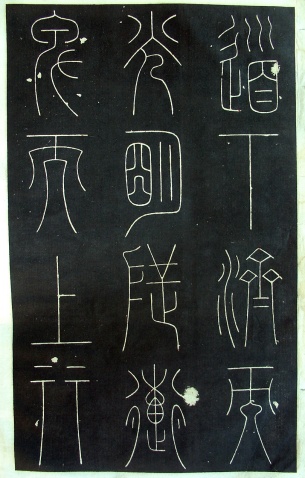 道下濟而
光明地道
卑而上行